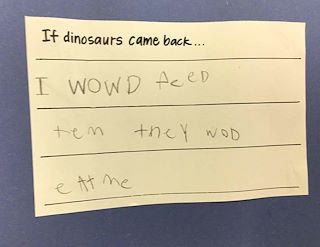 If dinosaurs came back...
I WOWD feeD
tem they WOD
eat me